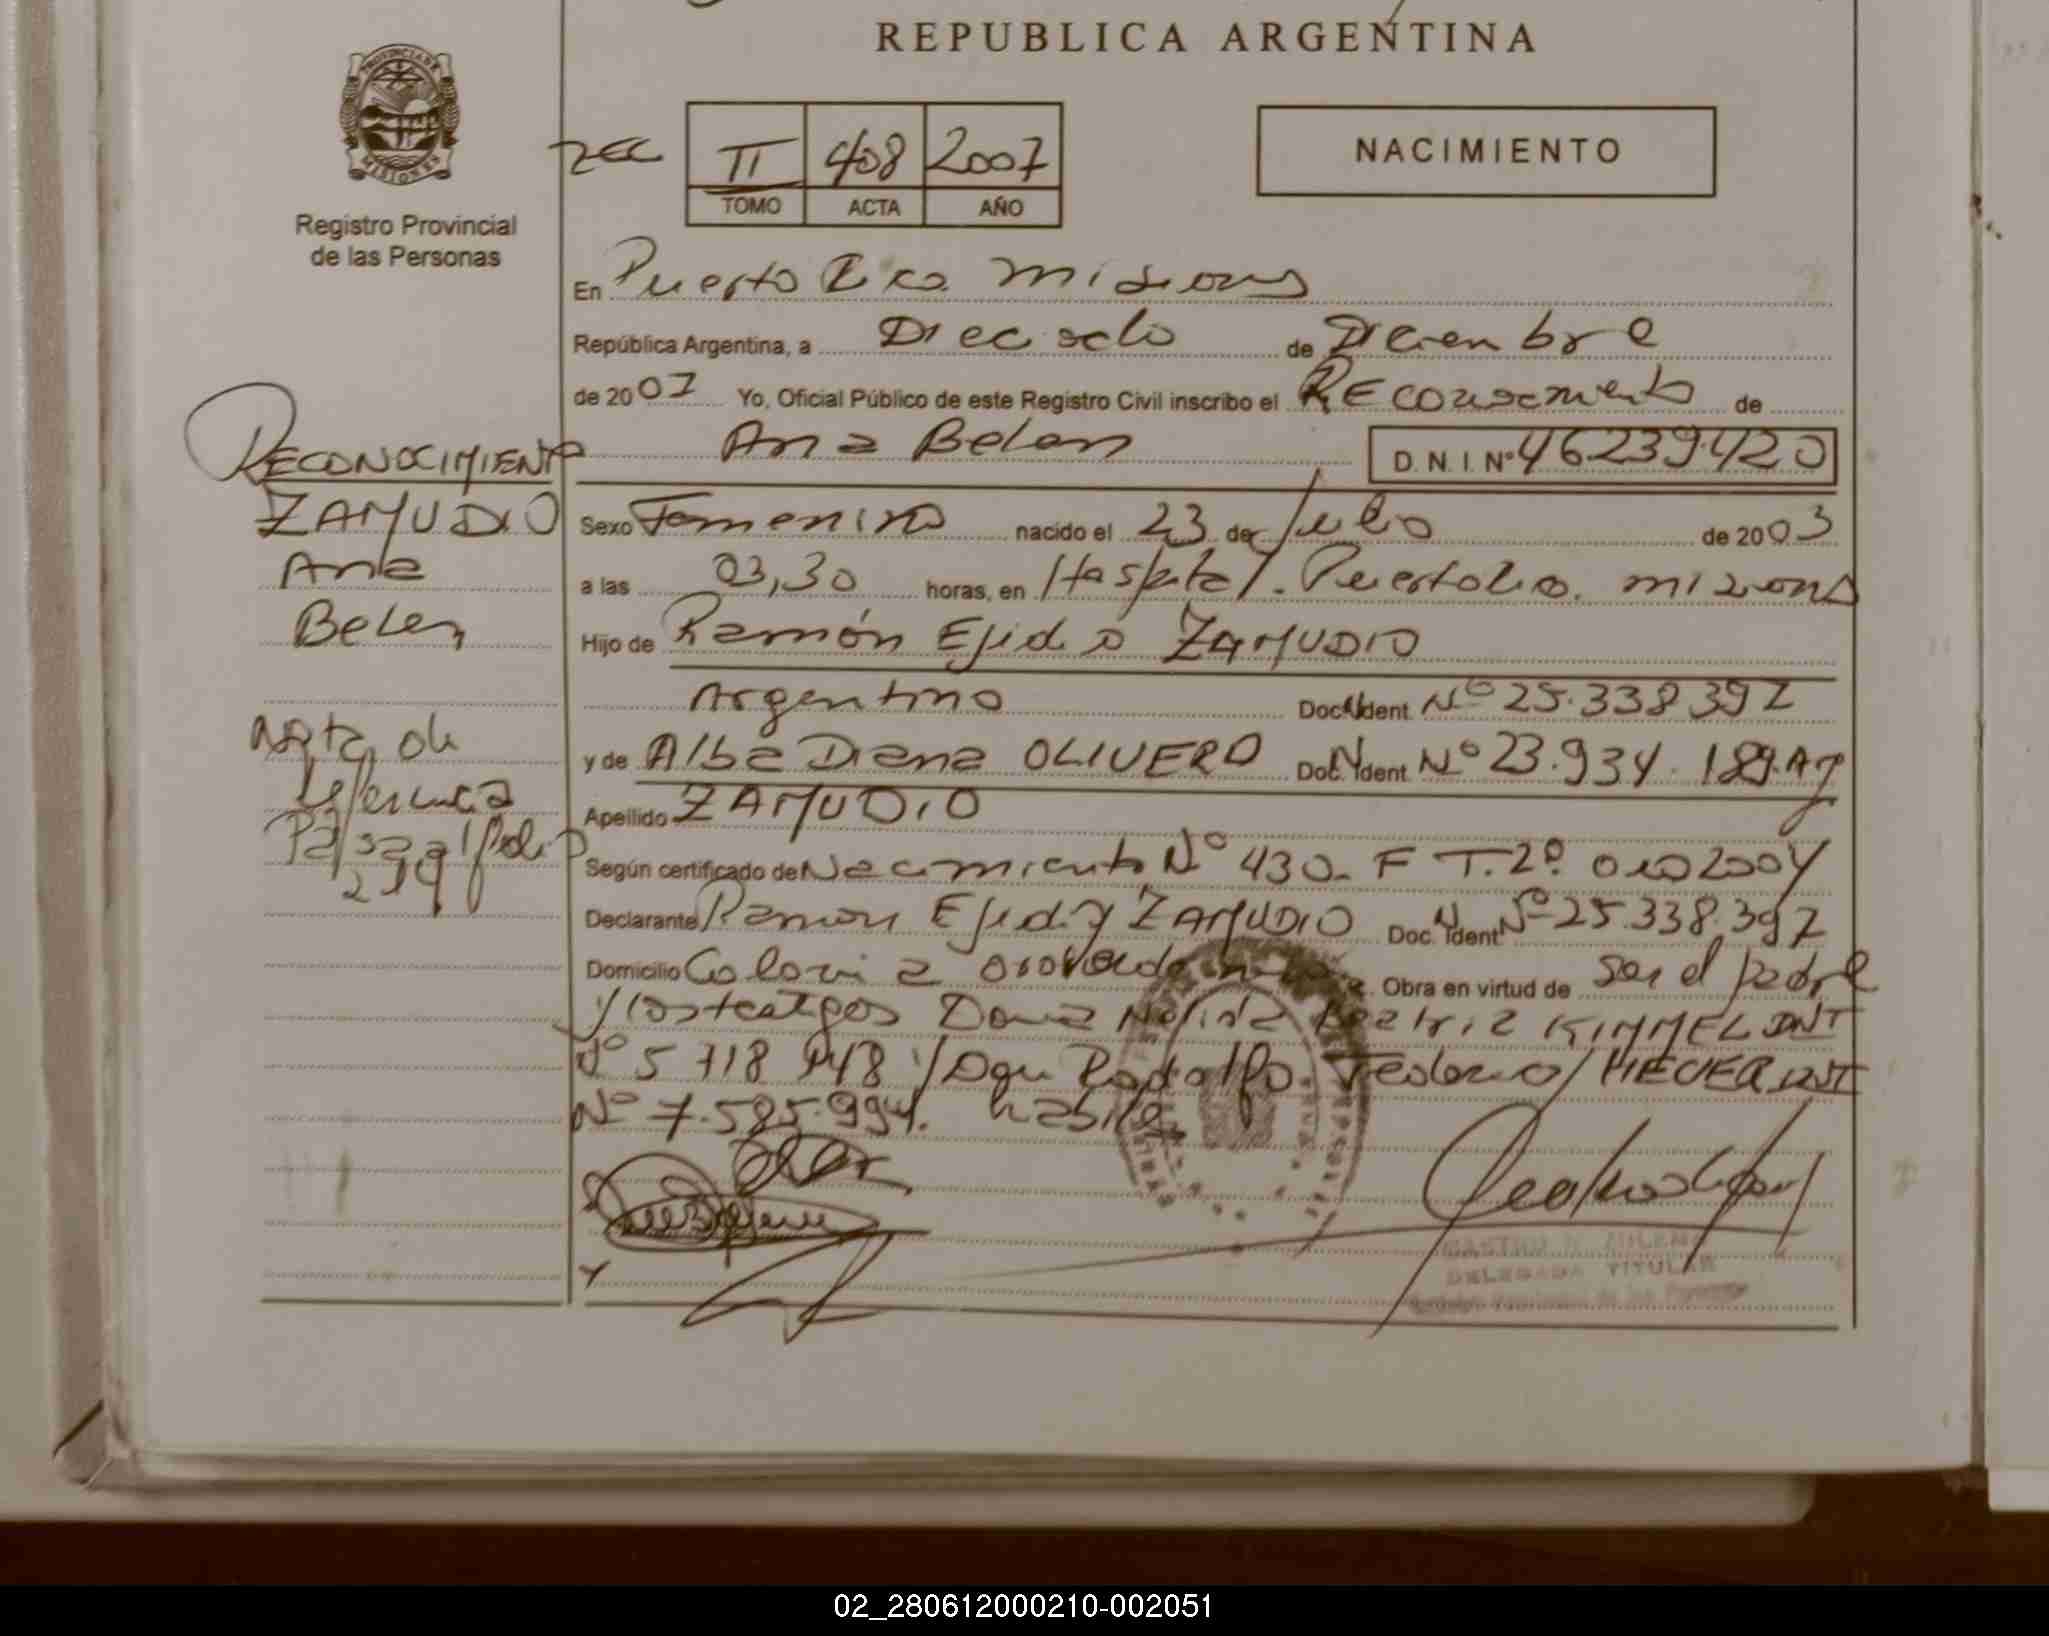 REPUBLICA ARGENTINA
PROVINCIA DE
MISIONES
Registro Provincial
de las Personas
REC II 408 2007
TOMO ACTA AÑO
NACIMIENTO
En Puerto Rico Misiones
República Argentina, a Dieciocho de Diciembre
de 2007 Yo, Oficial Público de este Registro Civil inscribo el Reconocimiento de
Ana Belen D.N.I. Nº 46239.420
Sexo Femenino nacido el 23 de Julio de 2003
a las 03,30 horas, en Hospital. Puerto Rico. Misiones
Hijo de Ramón Ejidio ZAMUDIO
Argentino Doc. Ident. Nº 25.338.397
y de Alba Diana OLIVERO Doc. Ident. Nº 23.934.189. Arg
Apellido ZAMUDIO
Según certificado de Nacimiento Nº 430- F T. 2º. año 2004
Declarante Ramon Ejidio ZAMUDIO Doc. Ident Nº 25.338.397
Domicilio Colonia Oro Verde Obra en virtud de ser el padre
y los testigos Doña Beatriz KIMMEL DNI
Nº 5 718 948 y Don Rodolfo MEVER DNI
Nº 7.585.994. habiles
RECONOCIMIENTO
ZAMUDIO
Ana
Belen
Nota de
referencia
Pasa al folio
219
DELEGADA TITULAR
Registro Provincial de las Personas
02_280612000210-002051